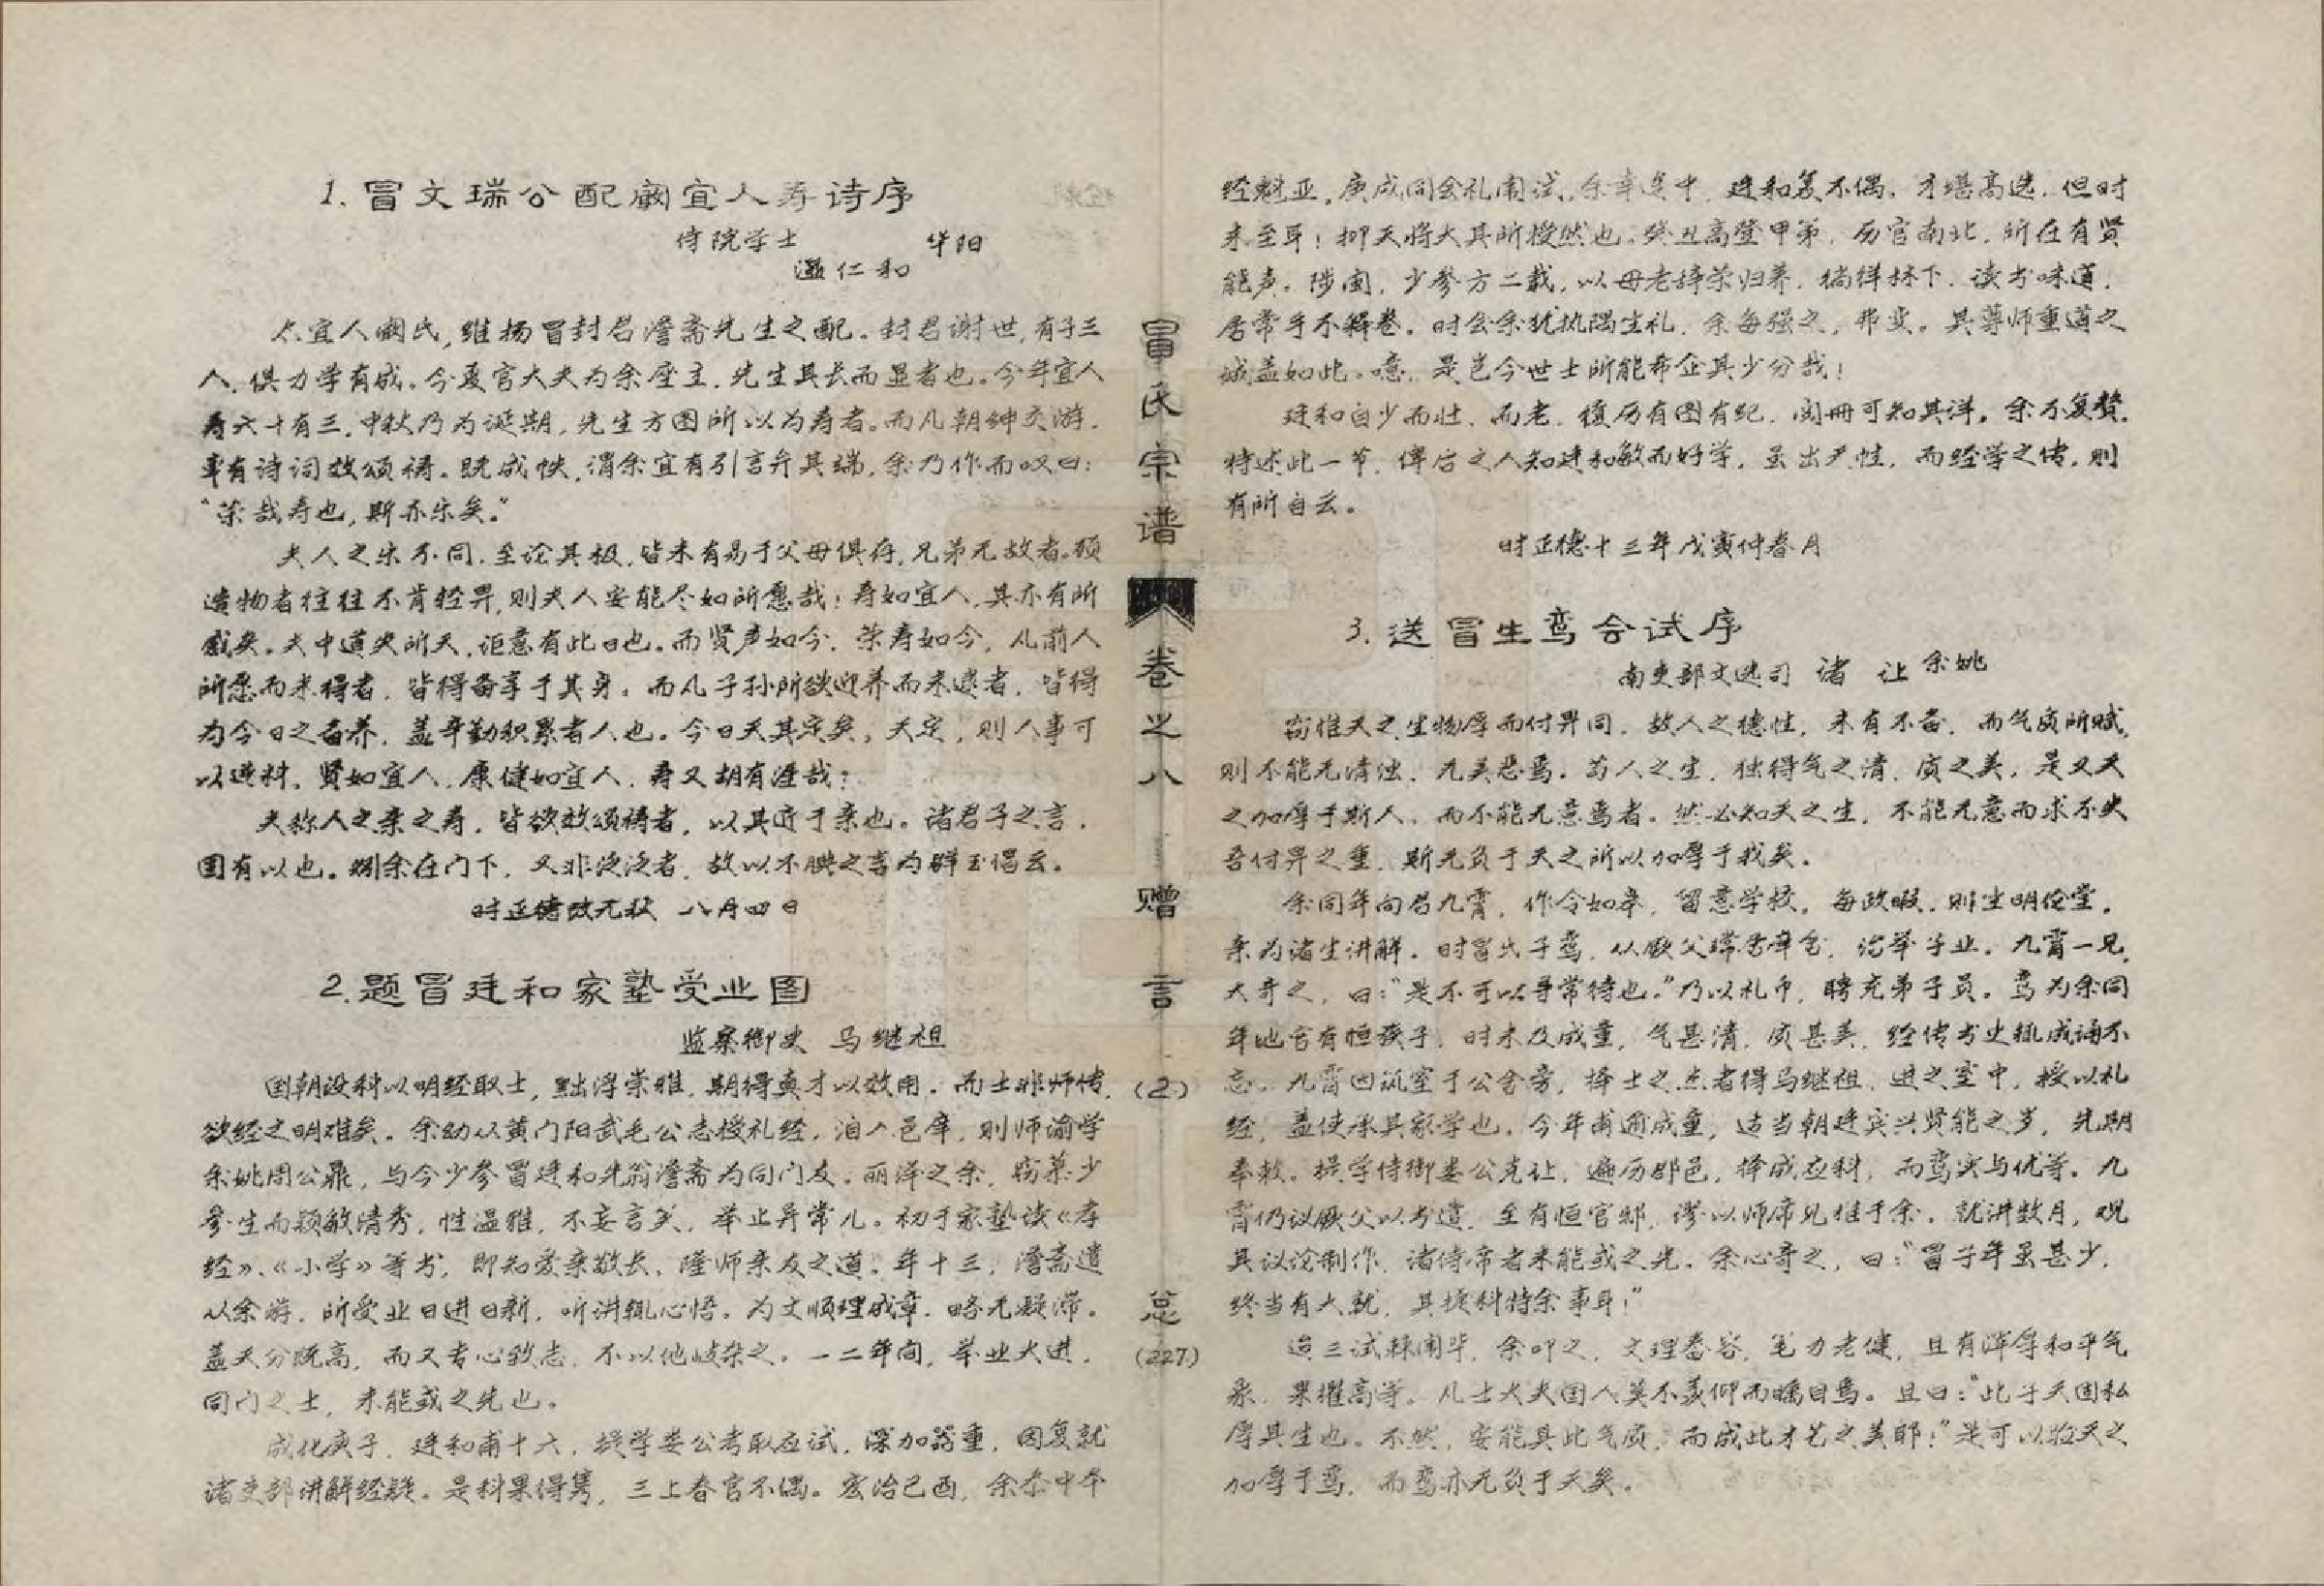 1. 冒文瑞公配阚宜人寿诗序
侍院学士 华阳
温仁和
太宜人阚氏,维扬冒封君澹斋先生之配。封君谢世,有子三
人,俱力学有成。今夏官大夫为余座主,先生其长而显者也。今年宜人
寿六十有三,中秋乃为诞期,先生方图所以为寿者。而凡朝绅交游,
率有诗词效颂祷。既成帙,谓余宜有引言弁其端,余乃作而叹曰:
“荣哉寿也,斯亦乐矣。”
夫人之乐不同,至论其极,皆未有易于父母俱存,兄弟无故者。顾
造物者往往不肯轻畀,则夫人安能尽如所愿哉!寿如宜人,其亦有所
感矣。夫中道失所天,讵意有此日也。而贤声如今,荣寿如今,凡前人
所愿而未得者,皆得备享于其身。而凡子孙所欲迎养而未逮者,皆得
为今日之备养,盖辛勤积累者人也。今日天其定矣,天定,则人事可
以逆料,贤如宜人,康健如宜人,寿又胡有涯哉?
夫称人之亲之寿,皆欲效颂祷者,以其近于亲也。诸君子之言,
固有以也。矧余在门下,又非泛泛者,故以不腆之言为群玉倡云。
时正德改元秋 八月四日
2.题冒廷和家塾受业图
监察御史 马继祖
国朝设科以明经取士,黜浮崇雅,期得真才以效用。而士非师传,
欲经之明难矣。余幼从黄门阳武毛公志授礼经,洎入邑庠,则师谕学
余姚周公鼎,与今少参冒廷和先翁澹斋为同门友。丽泽之余,窃慕少
参生而颖敏清秀,性温雅,不妄言笑,举止异常儿。初于家塾读《孝
经》、《小学》等书,即知爱亲敬长、隆师亲友之道。年十三,澹斋遣
从余游,所受业日进日新,听讲辄心悟。为文顺理成章,略无凝滞。
盖天分既高,而又专心致志,不以他歧杂之。一二年间,举业大进,
同门之士,未能或之先也。
成化庚子,廷和甫十六,提学娄公考取应试,深加器重,因复就
诸吏部讲解经疑。是科果得隽,三上春官不偶。宏治己酉,余忝中本
冒氏宗谱
卷之八
赠
言
(2)
总
(227)
经魁亚,庚戌同会礼闱试,余幸连中,廷和复不偶。才堪高选,但时
未至耳!抑天将大其所授然也。癸丑高登甲第,历官南北,所在有贤
能声。陟闽,少参方二载,以母老辞荣归养,徜徉林下,读书味道,
居常手不释卷。时会余犹执隅坐礼,余每强之,弗变。其尊师重道之
诚盖如此。噫,是岂今世士所能希企其少分哉!
廷和自少而壮,而老,履历有图有纪,阅册可知其详。余不复赘,
特述此一节,俾后之人知廷和敏而好学,虽出天性,而经学之传,则
有所自云。
时正德十三年戊寅仲春月
3.送冒生鸾会试序
南吏部文选司 诸 让 余姚
窃惟天之生物厚而付畀同,故人之德性,未有不备,而气质所赋,
则不能无清浊,无美恶焉。苟人之生,独得气之清,质之美,是又天
之加厚于斯人,而不能无意焉者。然必知天之生,不能无意而求不失
吾付畀之重,斯无负于天之所以加厚于我矣。
余同年向君九霄,作令如皋,留意学校。每政暇,则坐明伦堂,
亲为诸生讲解。时冒氏子鸾,从厥父璨居庠舍,治举子业。九霄一见,
大奇之,曰:“是不可以寻常待也。”乃以礼币,聘充弟子员。鸾为余同
年地官有恒孩子,时未及成童,气甚清,质甚美,经传书史辄成诵不
忘。九霄因筑室于公舍旁,择士之杰者得马继祖,进之室中,授以礼
经,盖使承其家学也。今年甫逾成童,适当朝廷宾兴贤能之岁,先期
奉敕。提学侍御娄公克让,遍历郡邑,择成应科,而鸾实与优等。九
霄仍议厥父以书遣,至有恒官邸,谬以师席见推于余。就讲数月,观
其议论制作,诸侍帝者未能或之先。余心奇之,曰:“冒子年虽甚少,
终当有大就,其掇科特余事耳!”
迨三试棘闱毕,余叩之,文理春容,笔力老健,且有浑厚和平气
象,果擢高等。凡士大夫国人莫不羡仰而瞩目焉。且曰:“此子天固私
厚其生也。不然,安能具此气质,而成此才艺之美耶?”是可以验天之
加厚于鸾,而鸾亦无负于天矣。